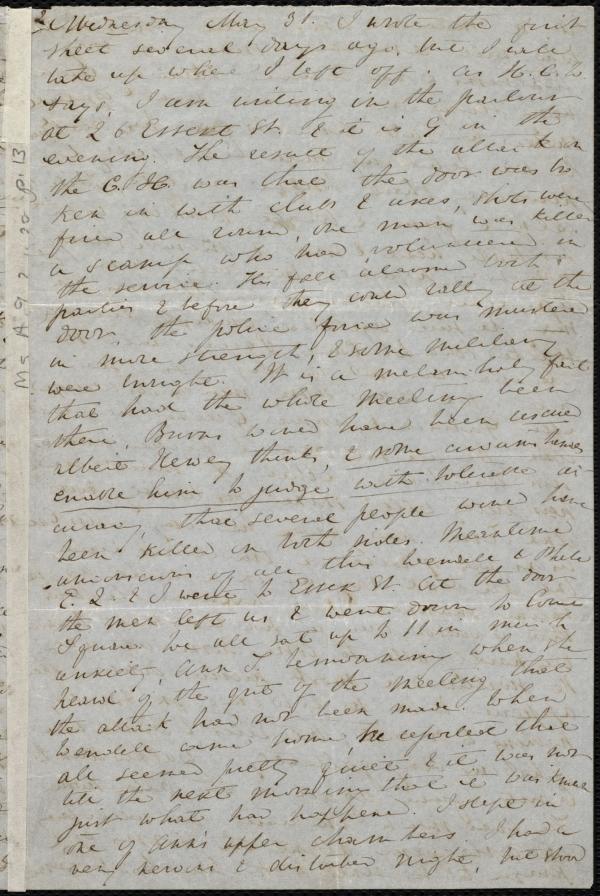 2 Wednesday May 31. I wrote the first
sheet several days ago, but I will
take up where I left off. As H. C. W.
says, I am writing in the parlour
at 26 Essex St. & it is 9 in the
evening. The result of the attack on
the C. H. was that the door was bro
ken in with clubs & axes, shots were
fired all round, one man was killed
a scamp who had volunteered in
the service. His fall alarmed both
parties & before they could rally at the
door the police force was mustered
in more strength, & some military
were brought. It is a melancholy fact
that had the whole meeting been
there, Burns would have been rescued
albeit Hovey thinks, & some circumstances
enable him to judge with tolerable ac
curacy, that several people would have
been killed on both sides. Meantime
unconscious of all this Wendell & Phebe
E. L. & I went to Essex St. At the door
the men left us & went down to Court
Square. We all sat up to 11 in much
anxiety, Ann T. bemoaning when she
heard of the gist of the meeting that
the attack had not been made. When
Wendell came home, he reported that
all seemed pretty quiet & it was not
till the next morning that it was known
just what had happened. I slept in
one of Ann's upper chambers. I had a
very nervous & disturbed night, but stood
Ms. A. 9. 2 p. 13